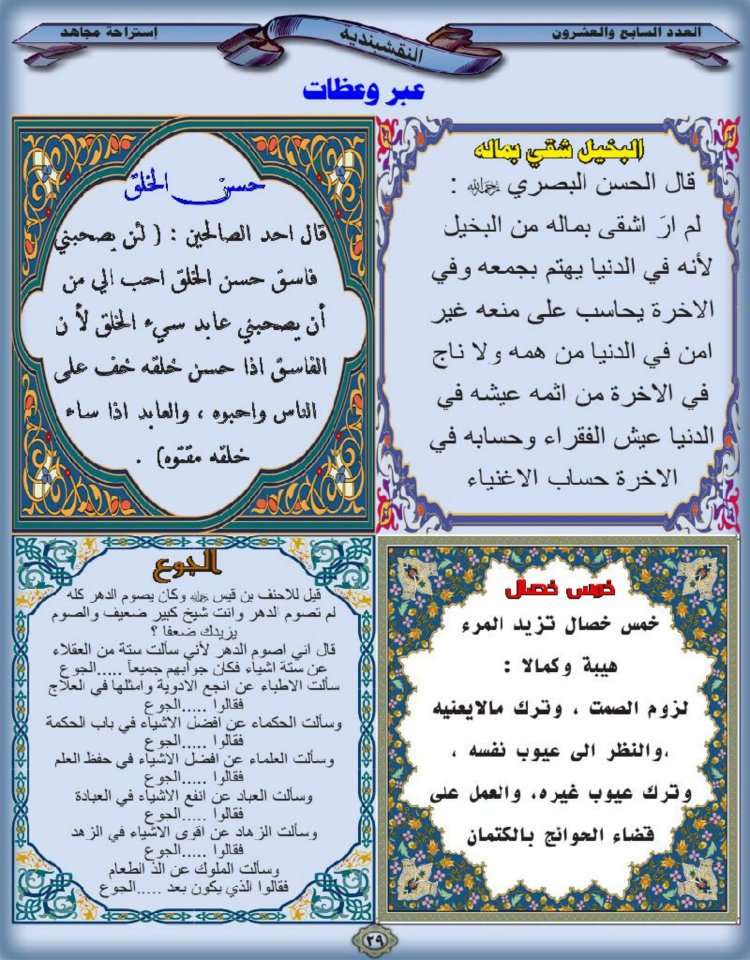 العدد السابع والعشرون
النقشبندية
إستراحة مجاهد
عبر وعظات
البخيل شقي بماله
قال الحسن البصري رحمه الله :
لم ارَ اشقى بماله من البخيل
لأنه في الدنيا يهتم بجمعه وفي
الاخرة يحاسب على منعه غير
امن في الدنيا من همه ولا ناج
في الاخرة من اثمه عيشه في
الدنيا عيش الفقراء وحسابه في
الاخرة حساب الاغنياء
حسن الخلق
قال احد الصالحين : ( لئن يصحبني
فاسق حسن الخلق احب الي من
أن يصحبني عابد سيء الخلق لأ ن
الفاسق اذا حسن خلقه خف على
الناس واحبوه ، والعابد اذا ساء
خلقه مقتوه) .
خمس خصال
خمس خصال تزيد المرء
هيبة وكمالا :
لزوم الصمت ، وترك مالايعنيه
،والنظر الى عيوب نفسه ،
وترك عيوب غيره، والعمل على
قضاء الحوائج بالكتمان
الجوع
قيل للاحنف بن قيس رحمه الله وكان يصوم الدهر كله
لم تصوم الدهر وانت شيخ كبير ضعيف والصوم
يزيدك ضعفا ؟
قال اني اصوم الدهر لأني سألت ستة من العقلاء
عن ستة اشياء فكان جوابهم جميعاً .....الجوع
سألت الاطباء عن انجع الادوية وامثلها في العلاج
فقالوا .....الجوع
وسألت الحكماء عن افضل الاشياء في باب الحكمة
فقالوا .....الجوع
وسألت العلماء عن افضل الاشياء في حفظ العلم
فقالوا .....الجوع
وسألت العباد عن انفع الاشياء في العبادة
فقالوا .....الجوع
وسألت الزهاد عن اقوى الاشياء في الزهد
فقالوا .....الجوع
وسألت الملوك عن الذ الطعام
فقالوا الذي يكون بعد .....الجوع
٢٩